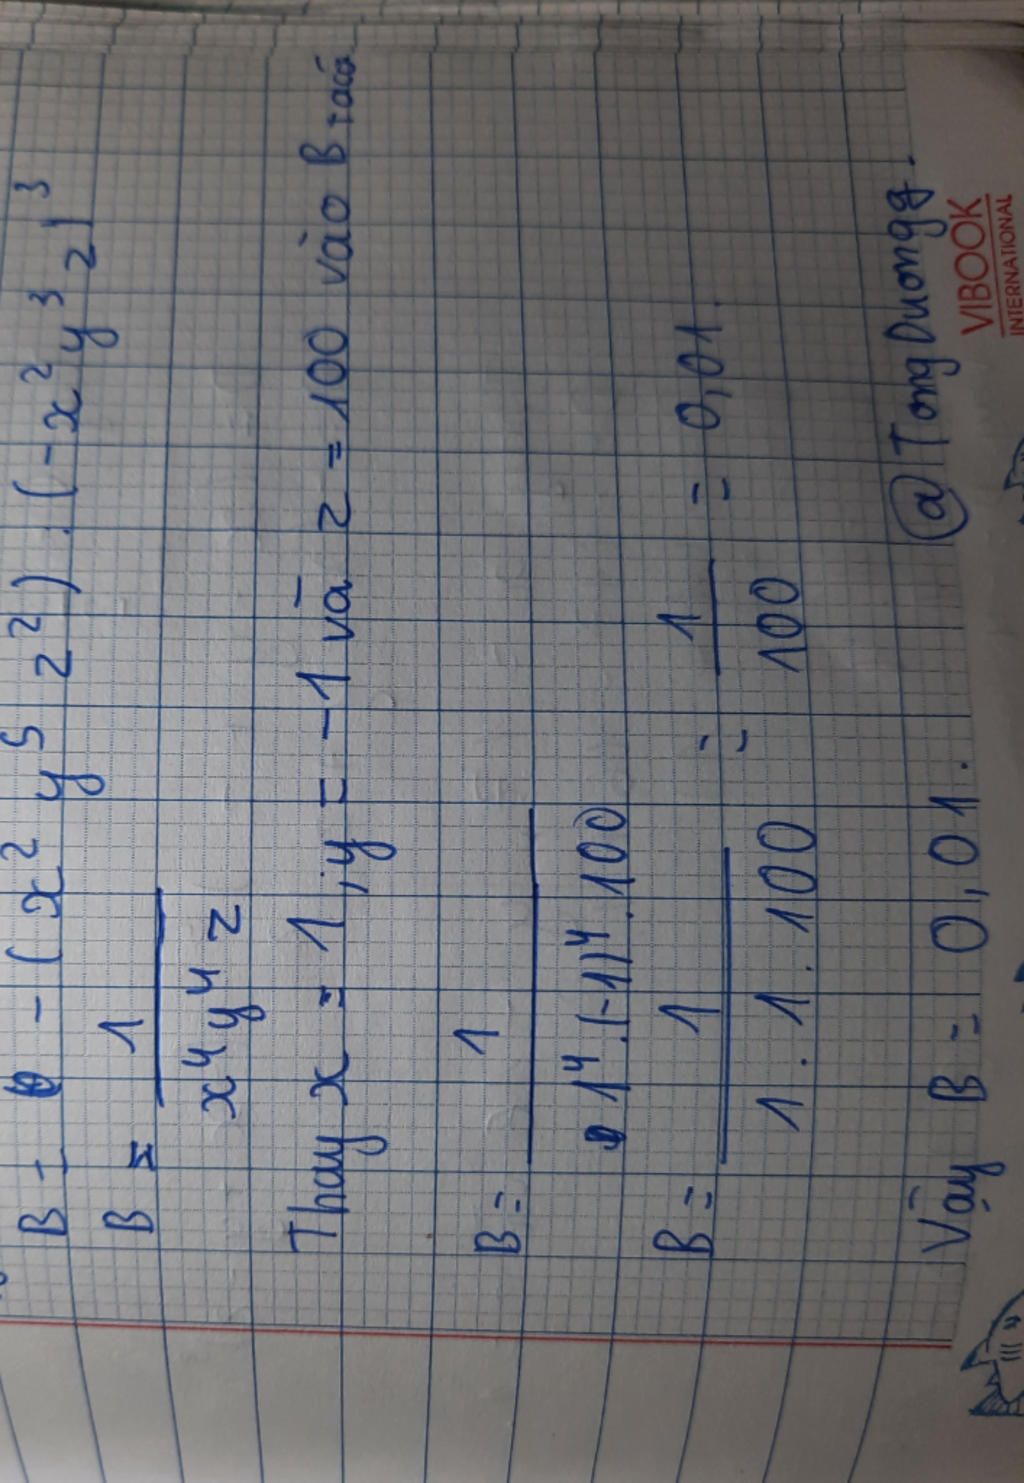 B = - (x² y⁵ z²) : (-x² y³ z)³
B = 1
x⁴y⁴z
Thay x = 1, y = -1 và z = 100 vào B
B = 1
1⁴.(-1)⁴.100
B = 1 = 1 = 0,01.
1.1.100 100
Vậy B = 0,01.
@TongDuongg.
VIBOOK
INTERNATIONAL